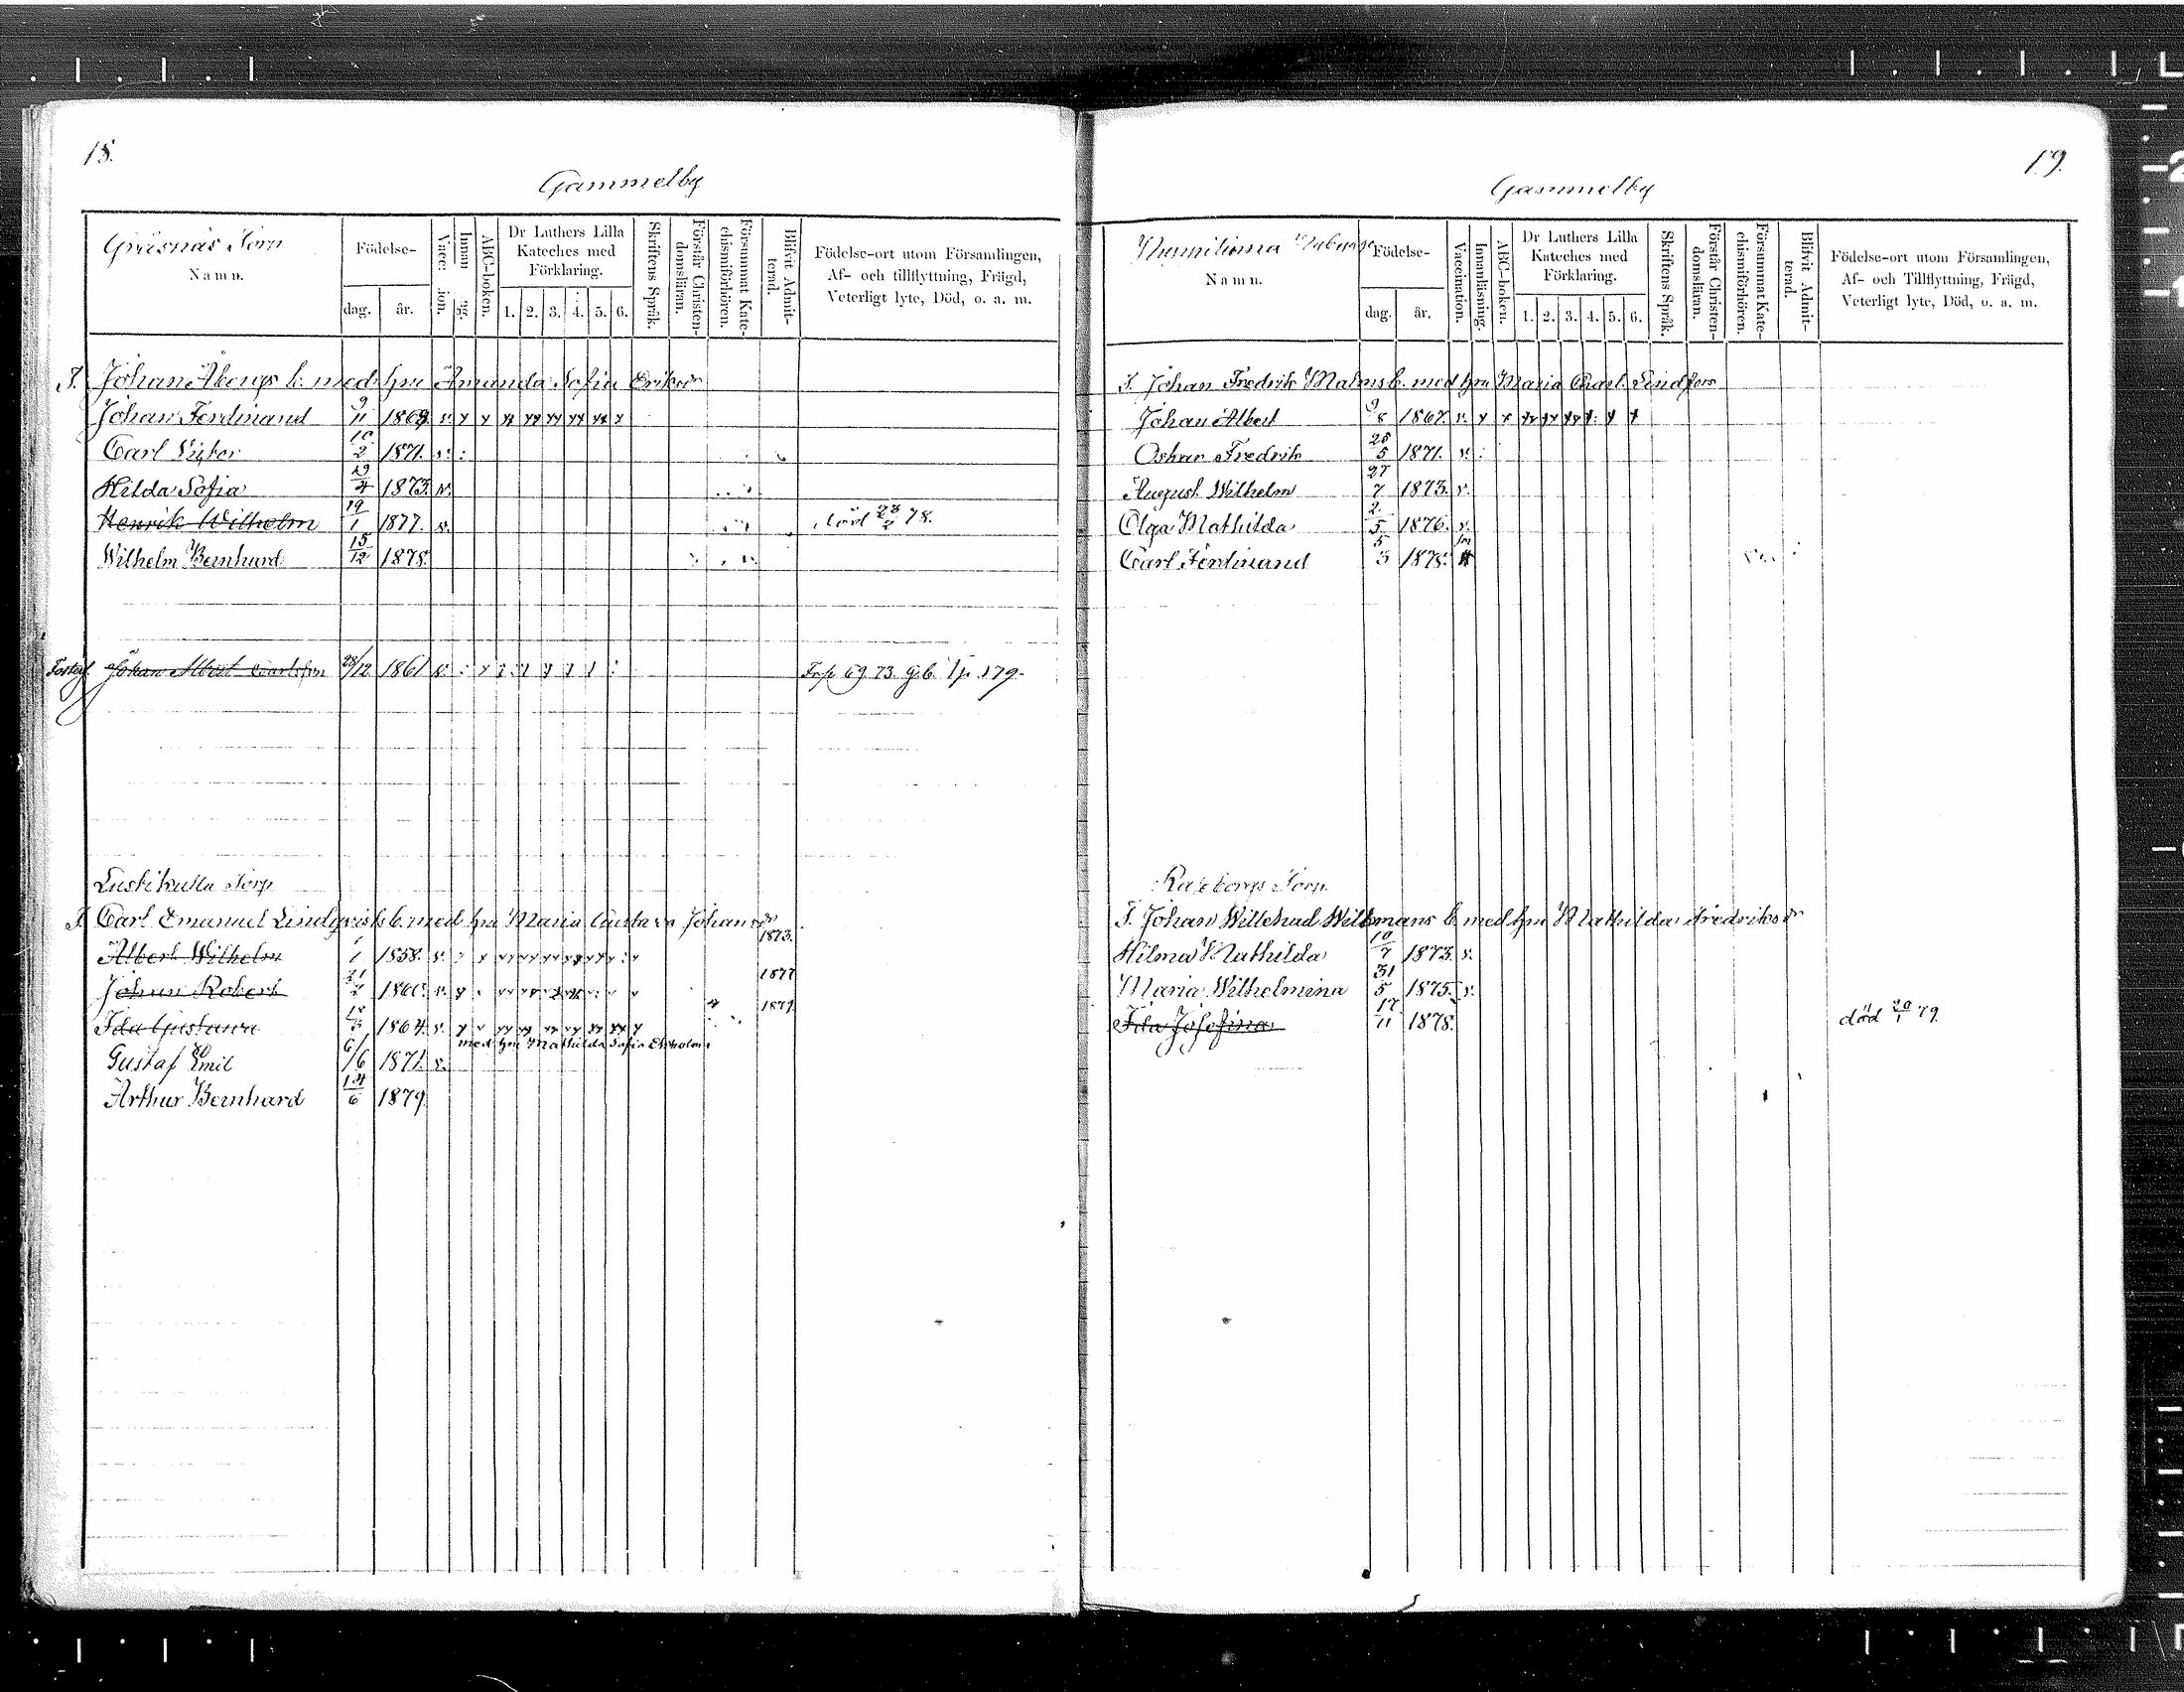 18.
Gammelby
Gräsnäs Torp
Namn.
Födelse-
dag. år.
Vacc: ion.
Innan
ABC-boken.
Dr Luthers Lilla
Kateches med
Förklaring.
1. 2. 3. 4. 5. 6.
Skriftens Språk.
Förstår Christen-
domsläran.
Försummat Kate-
chismiförhören.
Blifvit Admit-
terad.
Födelse-ort utom Församlingen,
Af- och tillflyttning, Frägd,
Veterligt lyte, Död, o. a. m.
T. Johan Åbergs b. med hru Amanda Sofia Eriksdr
Johan Ferdinand 9/11 1869 v.
Carl Viktor 10/2 1871. v.
Hilda Sofia 29/4 1873. v.
Henrik Wilhelm 19/1 1877. v. död 23/2 78.
Wilhelm Bernhard 15/12 1878.
Fosters. Johan Albert Carlsson 28/12 1861 v. Frp 69 73. g.b. 1 p 179.
Lustikulla Torp
T. Carl Emanuel Lindqvists b. med hru Maria Gustava Johansdr
Albert Wilhelm 1/1 1858. v. 1873.
Johan Robert 21/2 1860. v. 1877
Ida Gustava 18/3 1864. v. 1879.
med hru Mathilda Sofia Ekholm
Gustaf Emil 6/6 1871. v.
Arthur Bernhard 14/6 1879.
19.
Gammelby
Namn.
Födelse-
dag. år.
Vaccination.
Innanläsning.
ABC-boken.
Dr Luthers Lilla
Kateches med
Förklaring.
1. 2. 3. 4. 5. 6.
Skriftens Språk.
Förstår Christen-
domsläran.
Försummat Kate-
chismiförhören.
Blifvit Admit-
terad.
Födelse-ort utom Församlingen,
Af- och Tillflyttning, Frägd,
Veterligt lyte, Död, o. a. m.
T. Johan Fredrik Malms b. med hru Maria Charl. Lindfors
Johan Albert 9/8 1867. v.
Oskar Fredrik 25/5 1871. v.
August Wilhelm 27/7 1873. v.
Olga Mathilda 2/5 1876. v.
Carl Ferdinand 5/3 1878.
Torp
T. Johan Willehad Willmans b. med hru Mathilda Fredriksdr
Hilma Mathilda 10/7 1873. v.
Maria Wilhelmina 31/5 1875. v.
Ida Josefina 17/11 1878. död 20/1 79.